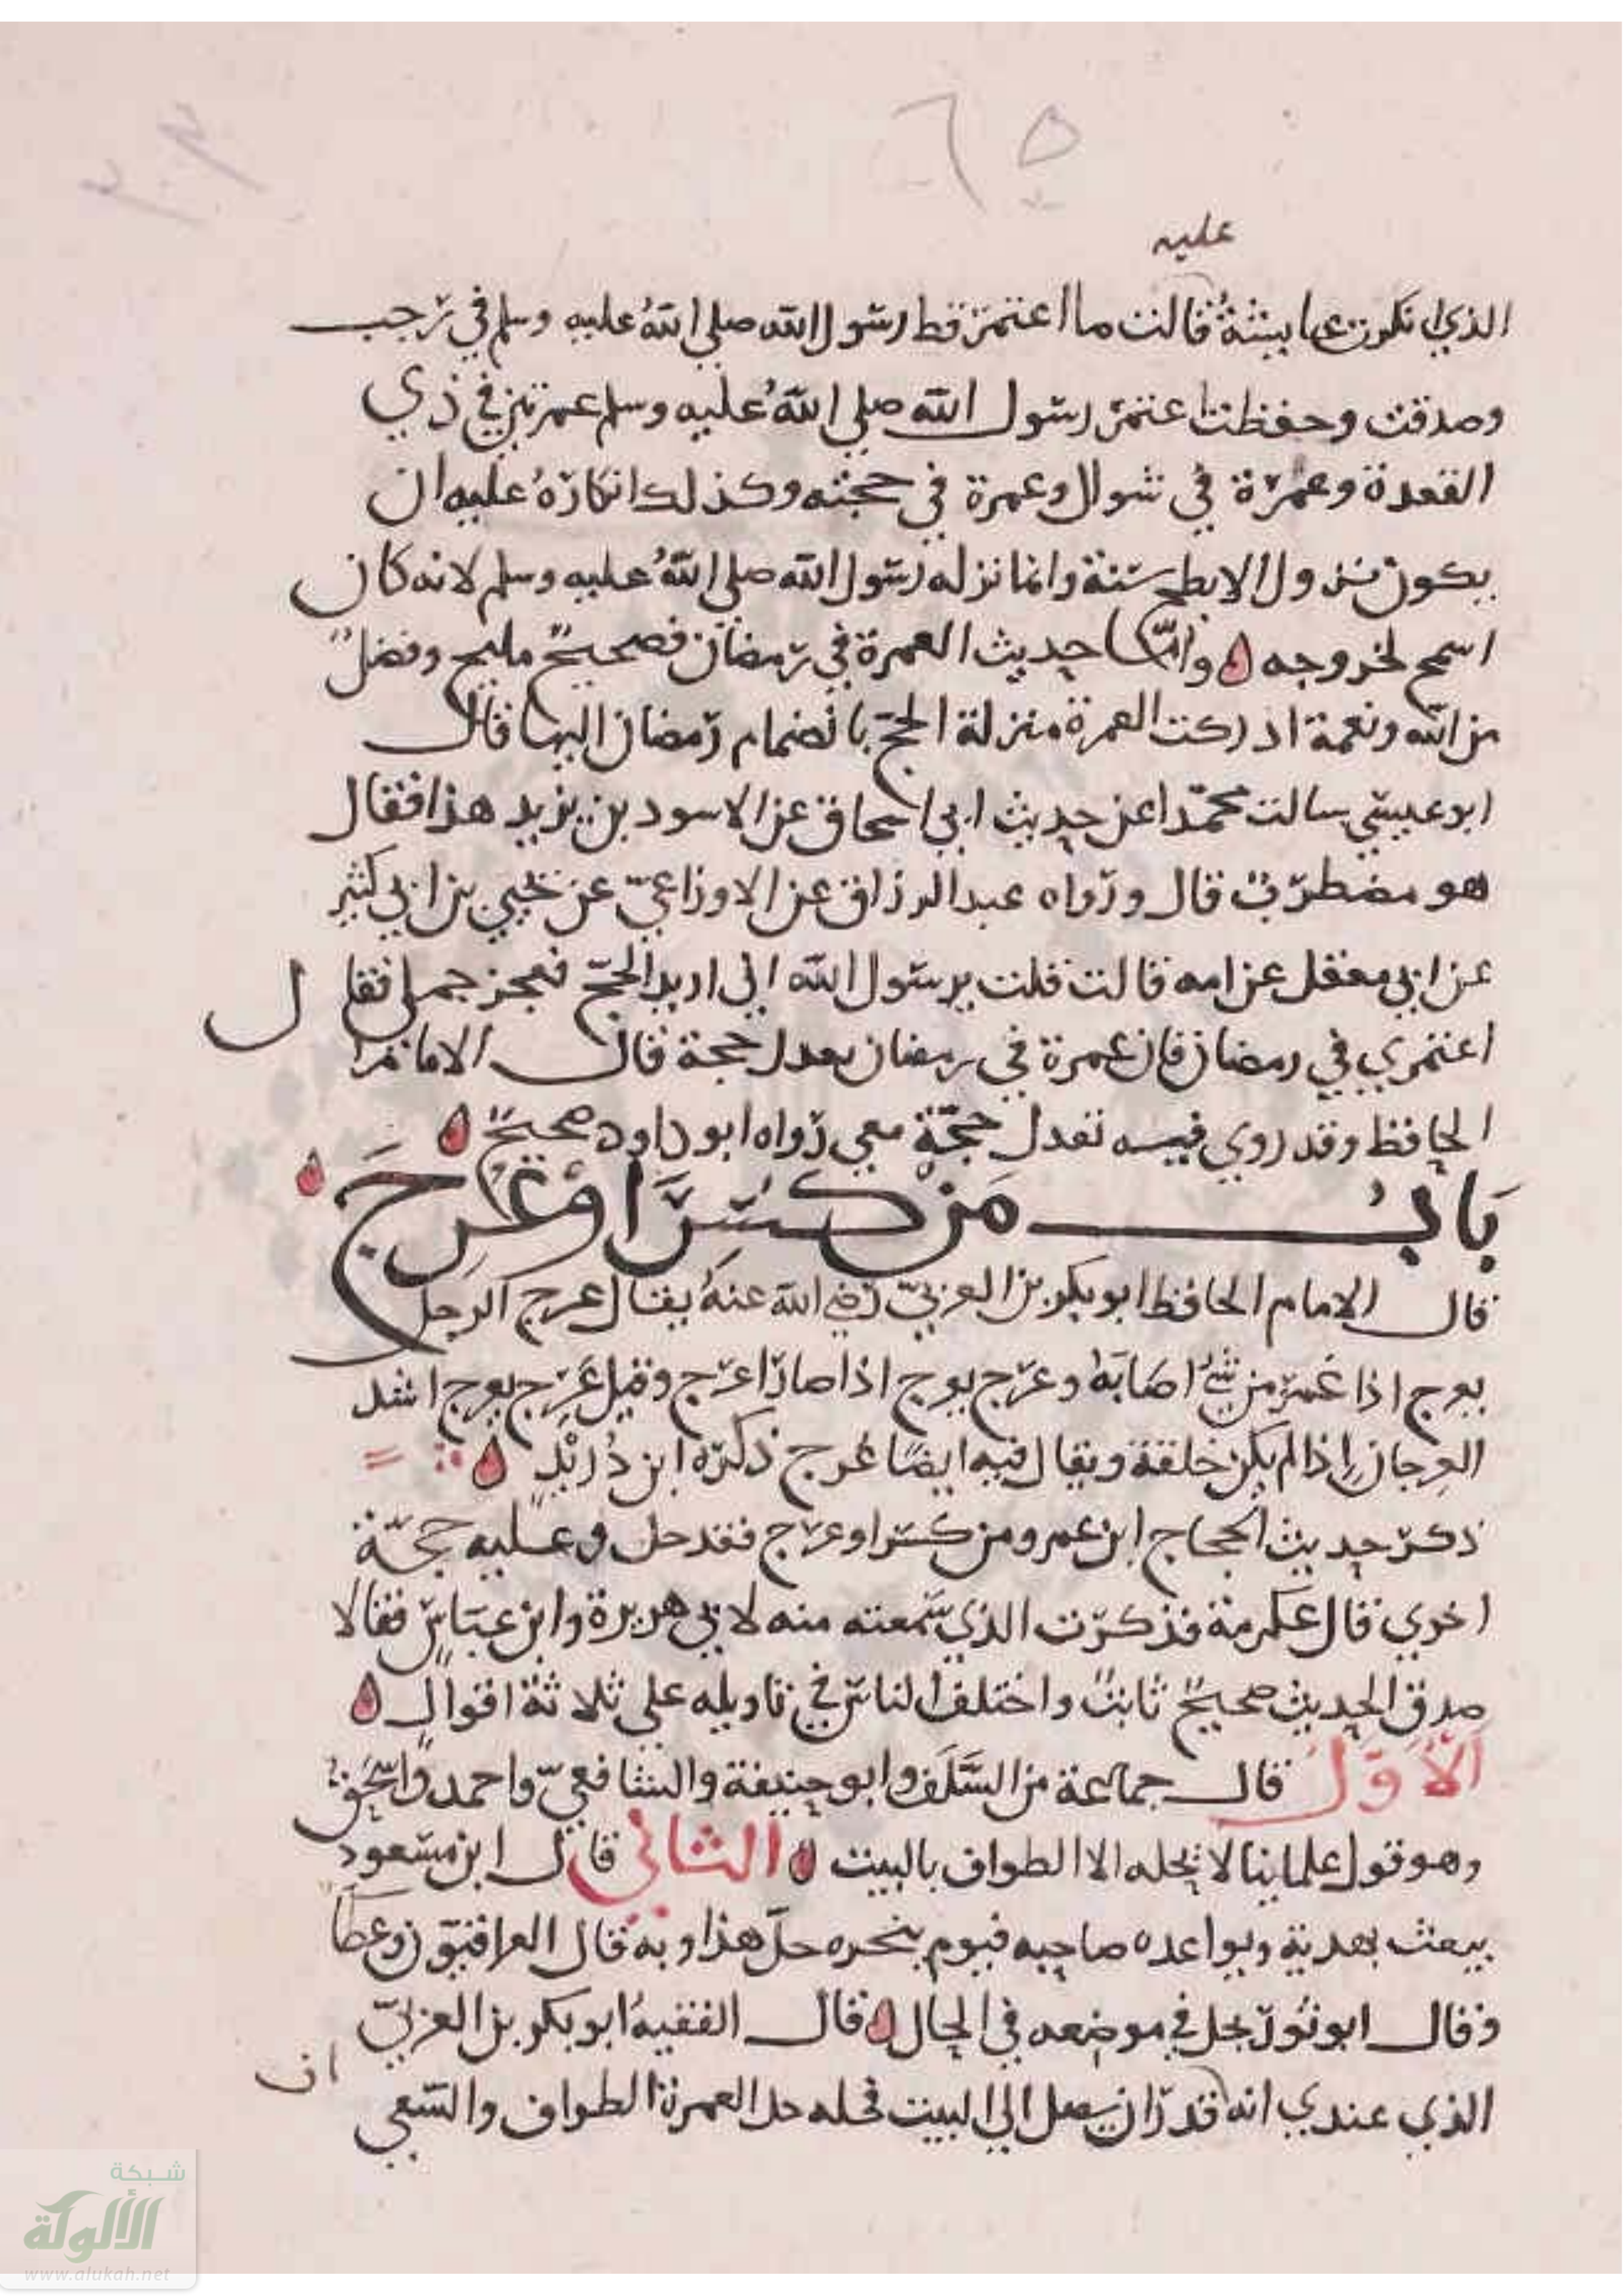 ٦٥
عليه
الذي انكرت عايشة قالت ما اعتمر قط رسول الله صلي الله عليه وسلم في رجب
وصدقت وحفظت اعتمر رسول الله صلي الله عليه وسلم عمرتين في ذي
القعدة وعمرة في شوال وعمرة في حجته وكذلك انكاره عليه ان
يكون نزول الابطح سنة وانما نزله رسول الله صلي الله عليه وسلم لانه كان
اسمح لخروجه وامّا حديث العمرة في رمضان فصحيح مليح وفضل
من الله ونعمة ادركت العمرة منزلة الحج بانضمام رمضان اليها قال
ابو عيسي سالت محمّدا عن حديث ابي اسحاق عن الاسود بن يزيد هذا فقال
هو مضطرب قال ورواه عبد الرزاق عن الاوزاعيّ عن يحيي بن ابي كثير
عن ابي معقل عن امه قالت قلت يرسول الله اني اريد الحجّ فعجز جملي فقال
اعتمري في رمضان فان عمرة في رمضان تعدل حجة قال الامام
الحافظ وقد روي فيه تعدل حجّة معي رواه ابو داود صحيح
بَابُ مَن كُسِرَ اوْ عَرِجَ
قال الامام الحافظ ابو بكر بن العربيّ رضي الله عنه يقال عرج الرجل
يعرج اذا غمز من شيء اصابه وعرج يعرج اذا صار اعرج وقيل عَرِج يعرج اشد
العرجان اذا لم يكن خلقة ويقال فيه ايضًا عُرج ذكره ابن دُرَيْدٍ
ذكر حديث الحجاج ابن عمرو من كسر او عرج فقد حل وعليه حجّة
اخري قال عكرمة فذكرت الذي سمعته منه لابي هريرة وابن عبّاس فقالا
صدق الحديث صحيح ثابت واختلف الناس في تاويله علي ثلاثة اقوال
الاوّل قال جماعة من السّلف وابو حنيفة والشافعيّ واحمد واسحق
وهو قول علماينا لا يحله الا الطواف بالبيت الثاني قال ابن مسعود
يبعث بهدية ويواعده صاحبه فيوم ينحره حلّ هذا وبه قال العراقيّون وعطا
وقال ابو ثور يحل في موضعه في الحال قال الفقيه ابو بكر بن العربيّ
ان
الذي عندي انه قدر ان يصل الي البيت فحله حل العمرة الطواف والسّعي
شبكة
الألوكة
www.alukah.net